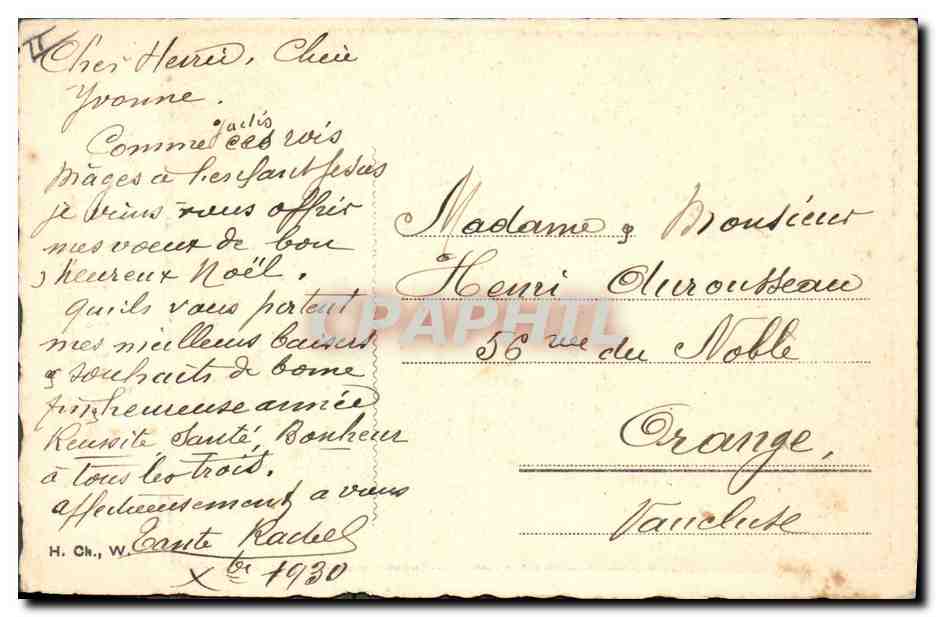 II
Cher Henri, Chère
Yvonne.
Comme jadis ces rois
Mages à l'enfant Jésus
je viens vous offrir
mes voeux de bon
heureux Noël.
qu'ils vous portent
mes meilleurs baisers
& souhaits de bonne
fin & heureuse année
Reussite Santé, Bonheur
à tous les trois.
affectueusement a vous
Tante Rachel
Xbre 1930
H. Ch., W.
Madame & Monsieur
Henri Durousseau
56 rue du Noble
Orange,
Vaucluse
CPAPHIL